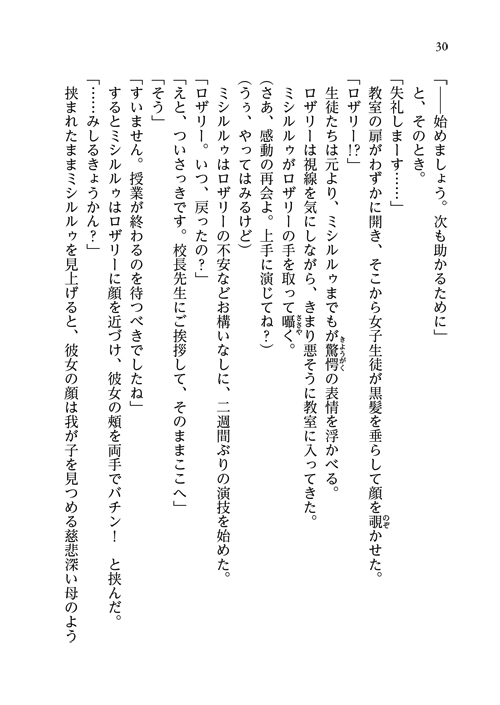 30
「――始めましょう。次も助かるために」
と、そのとき。
「失礼しまーす……」
教室の扉がわずかに開き、そこから女子生徒が黒髪を垂らして顔を覗かせた。
のぞ
「ロザリー!?」
生徒たちは元より、ミシルルゥまでもが驚愕の表情を浮かべる。
きようがく
ロザリーは視線を気にしながら、きまり悪そうに教室に入ってきた。
ミシルルゥがロザリーの手を取って囁く。
ささや
(さあ、感動の再会よ。上手に演じてね?)
(うぅ、やってはみるけど)
ミシルルゥはロザリーの不安などお構いなしに、二週間ぶりの演技を始めた。
「ロザリー。いつ、戻ったの?」
「えと、ついさっきです。校長先生にご挨拶して、そのままここへ」
「そう」
「すいません。授業が終わるのを待つべきでしたね」
するとミシルルゥはロザリーに顔を近づけ、彼女の頬を両手でバチン! と挟んだ。
「……みしるきょうかん?」
挟まれたままミシルルゥを見上げると、彼女の顔は我が子を見つめる慈悲深い母のよう